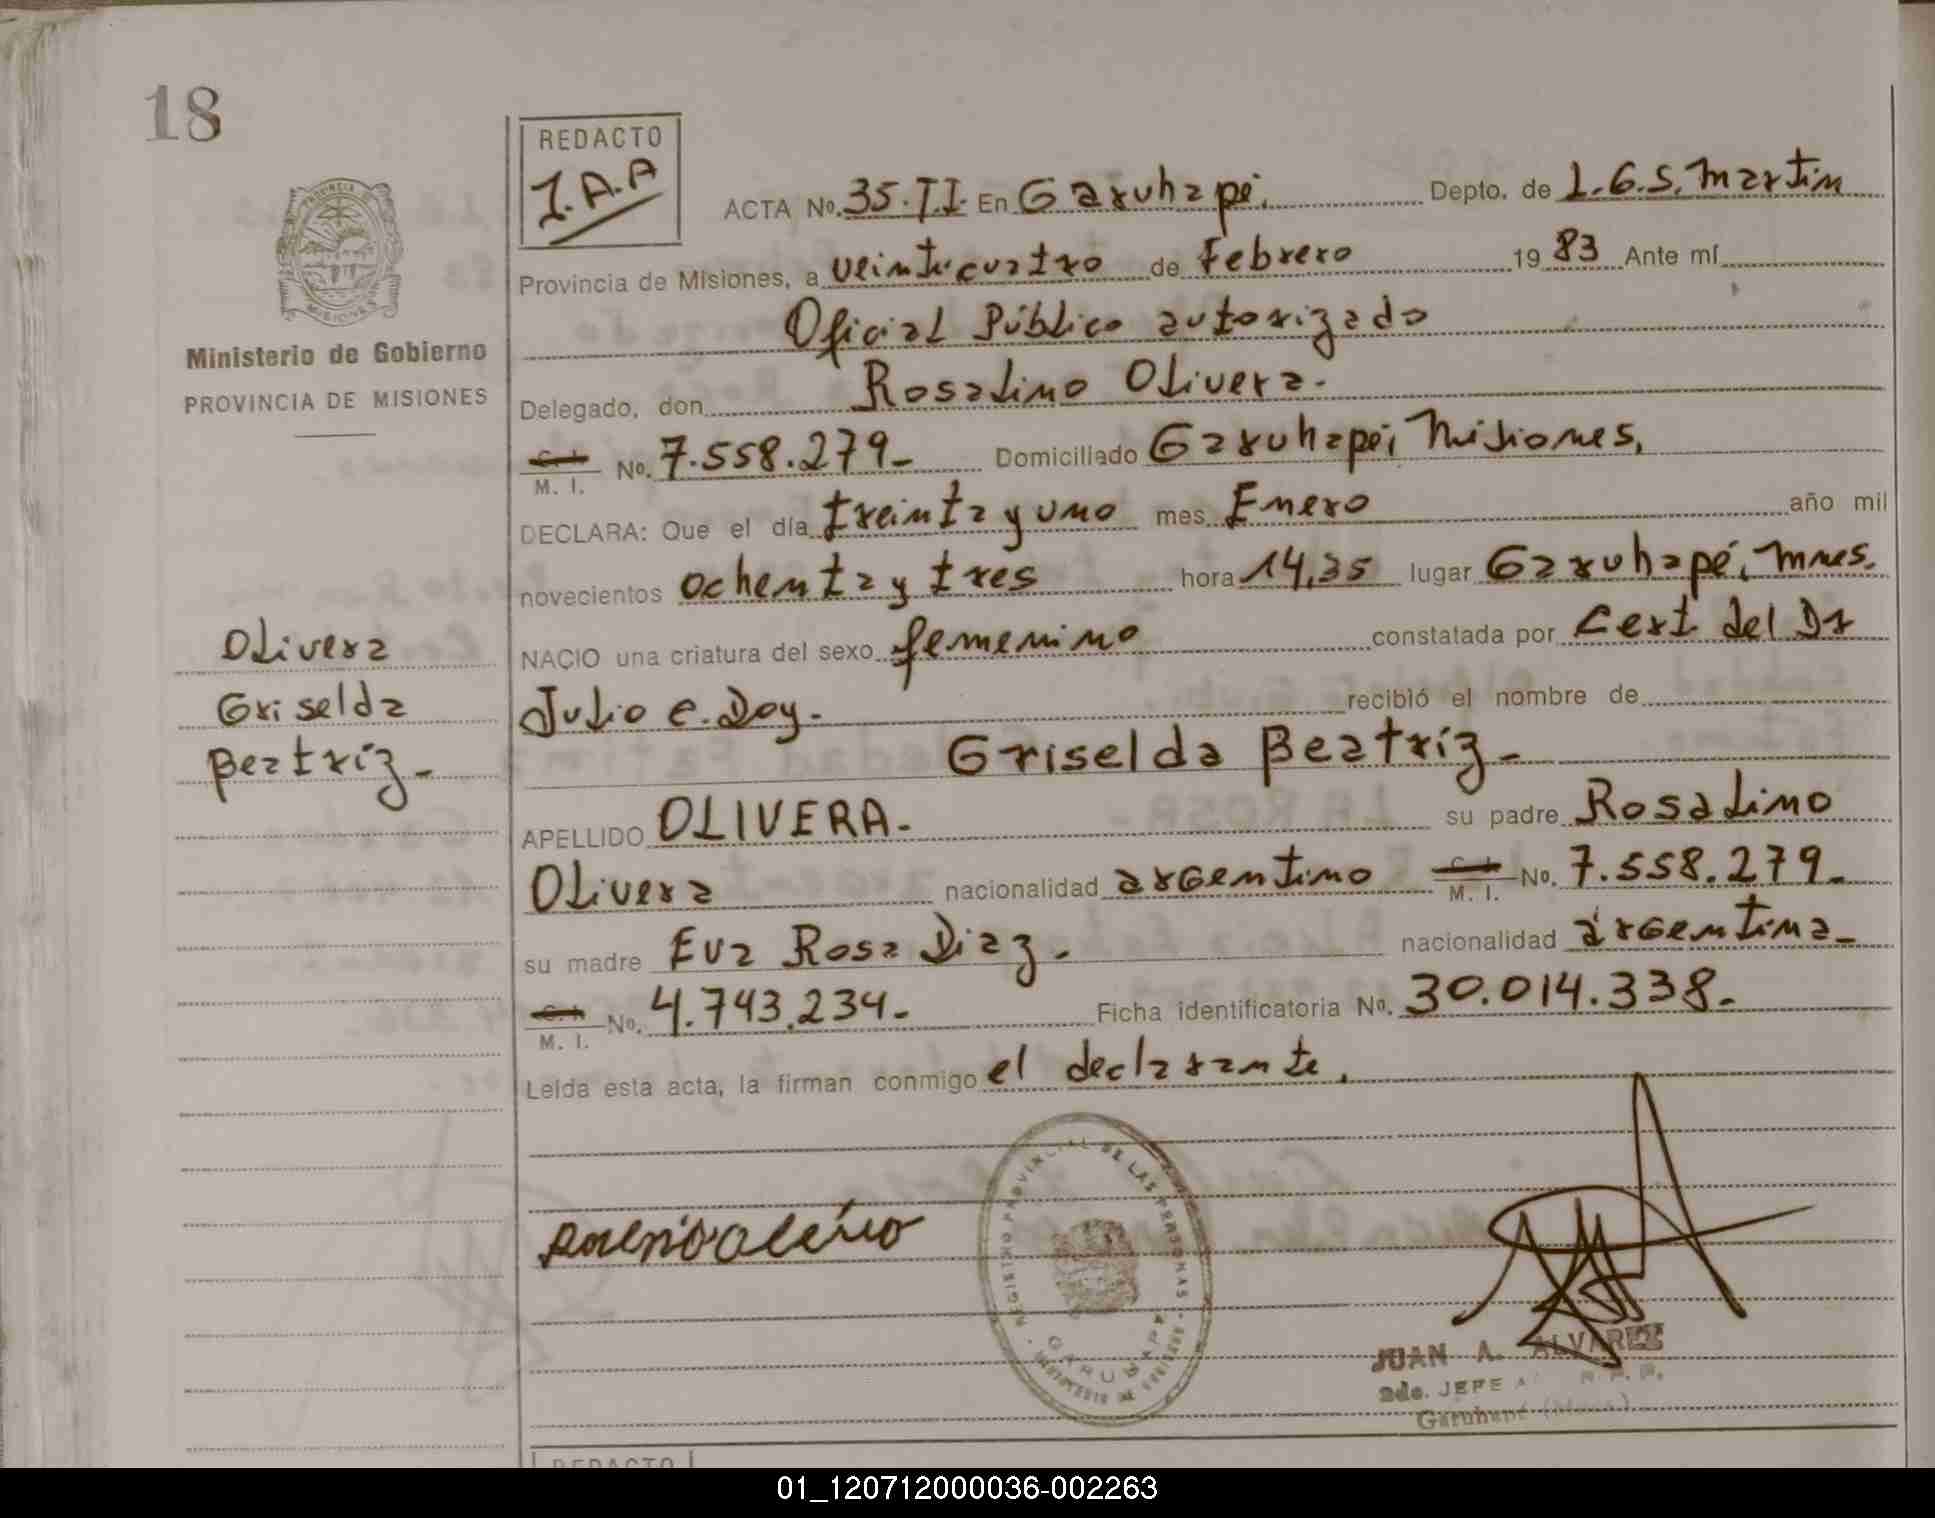 18
REDACTO
J.A.A
ACTA No. 35.T.I. En Garuhapé. Depto. de L.G.S. Martin
Provincia de Misiones, a veinticuatro de Febrero 19 83 Ante mí
Oficial Público autorizado
Ministerio de Gobierno
PROVINCIA DE MISIONES
Delegado, don Rosalino Olivera.
C. I.
M. I. No. 7.558.279_ Domiciliado Garuhapé, Misiones,
DECLARA: Que el día treinta y uno mes Enero año mil
novecientos ochenta y tres hora 14,35 lugar Garuhapé, Mnes.
NACIO una criatura del sexo femenino constatada por Cert. del Dr
Julio e. Doy. recibió el nombre de
Griselda Beatríz._
Olivera
Griselda
Beatríz._
APELLIDO OLIVERA. su padre Rosalino
Olivera nacionalidad argentino C. I.
M. I. No. 7.558.279._
su madre Eva Rosa Diaz. nacionalidad argentina_
C. I.
M. I. No. 4.743.234. Ficha identificatoria No. 30.014.338.
Leída esta acta, la firman conmigo el declarante.
REGISTRO PROVINCIAL DE LAS PERSONAS
GARUHAPÉ
JUAN A. ALVAREZ
2do. JEFE
Garuhapé (Mnes)
REDACTO
01_120712000036-002263